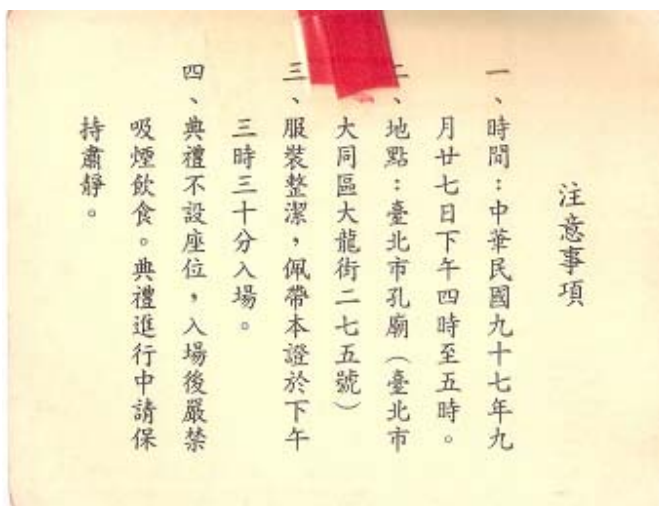 注意事項
一、時間：中華民國九十七年九
月廿七日下午四時至五時。
二、地點：臺北市孔廟（臺北市
大同區大龍街二七五號）
三、服裝整潔，佩帶本證於下午
三時三十分入場。
四、典禮不設座位，入場後嚴禁
吸煙飲食。典禮進行中請保
持肅靜。